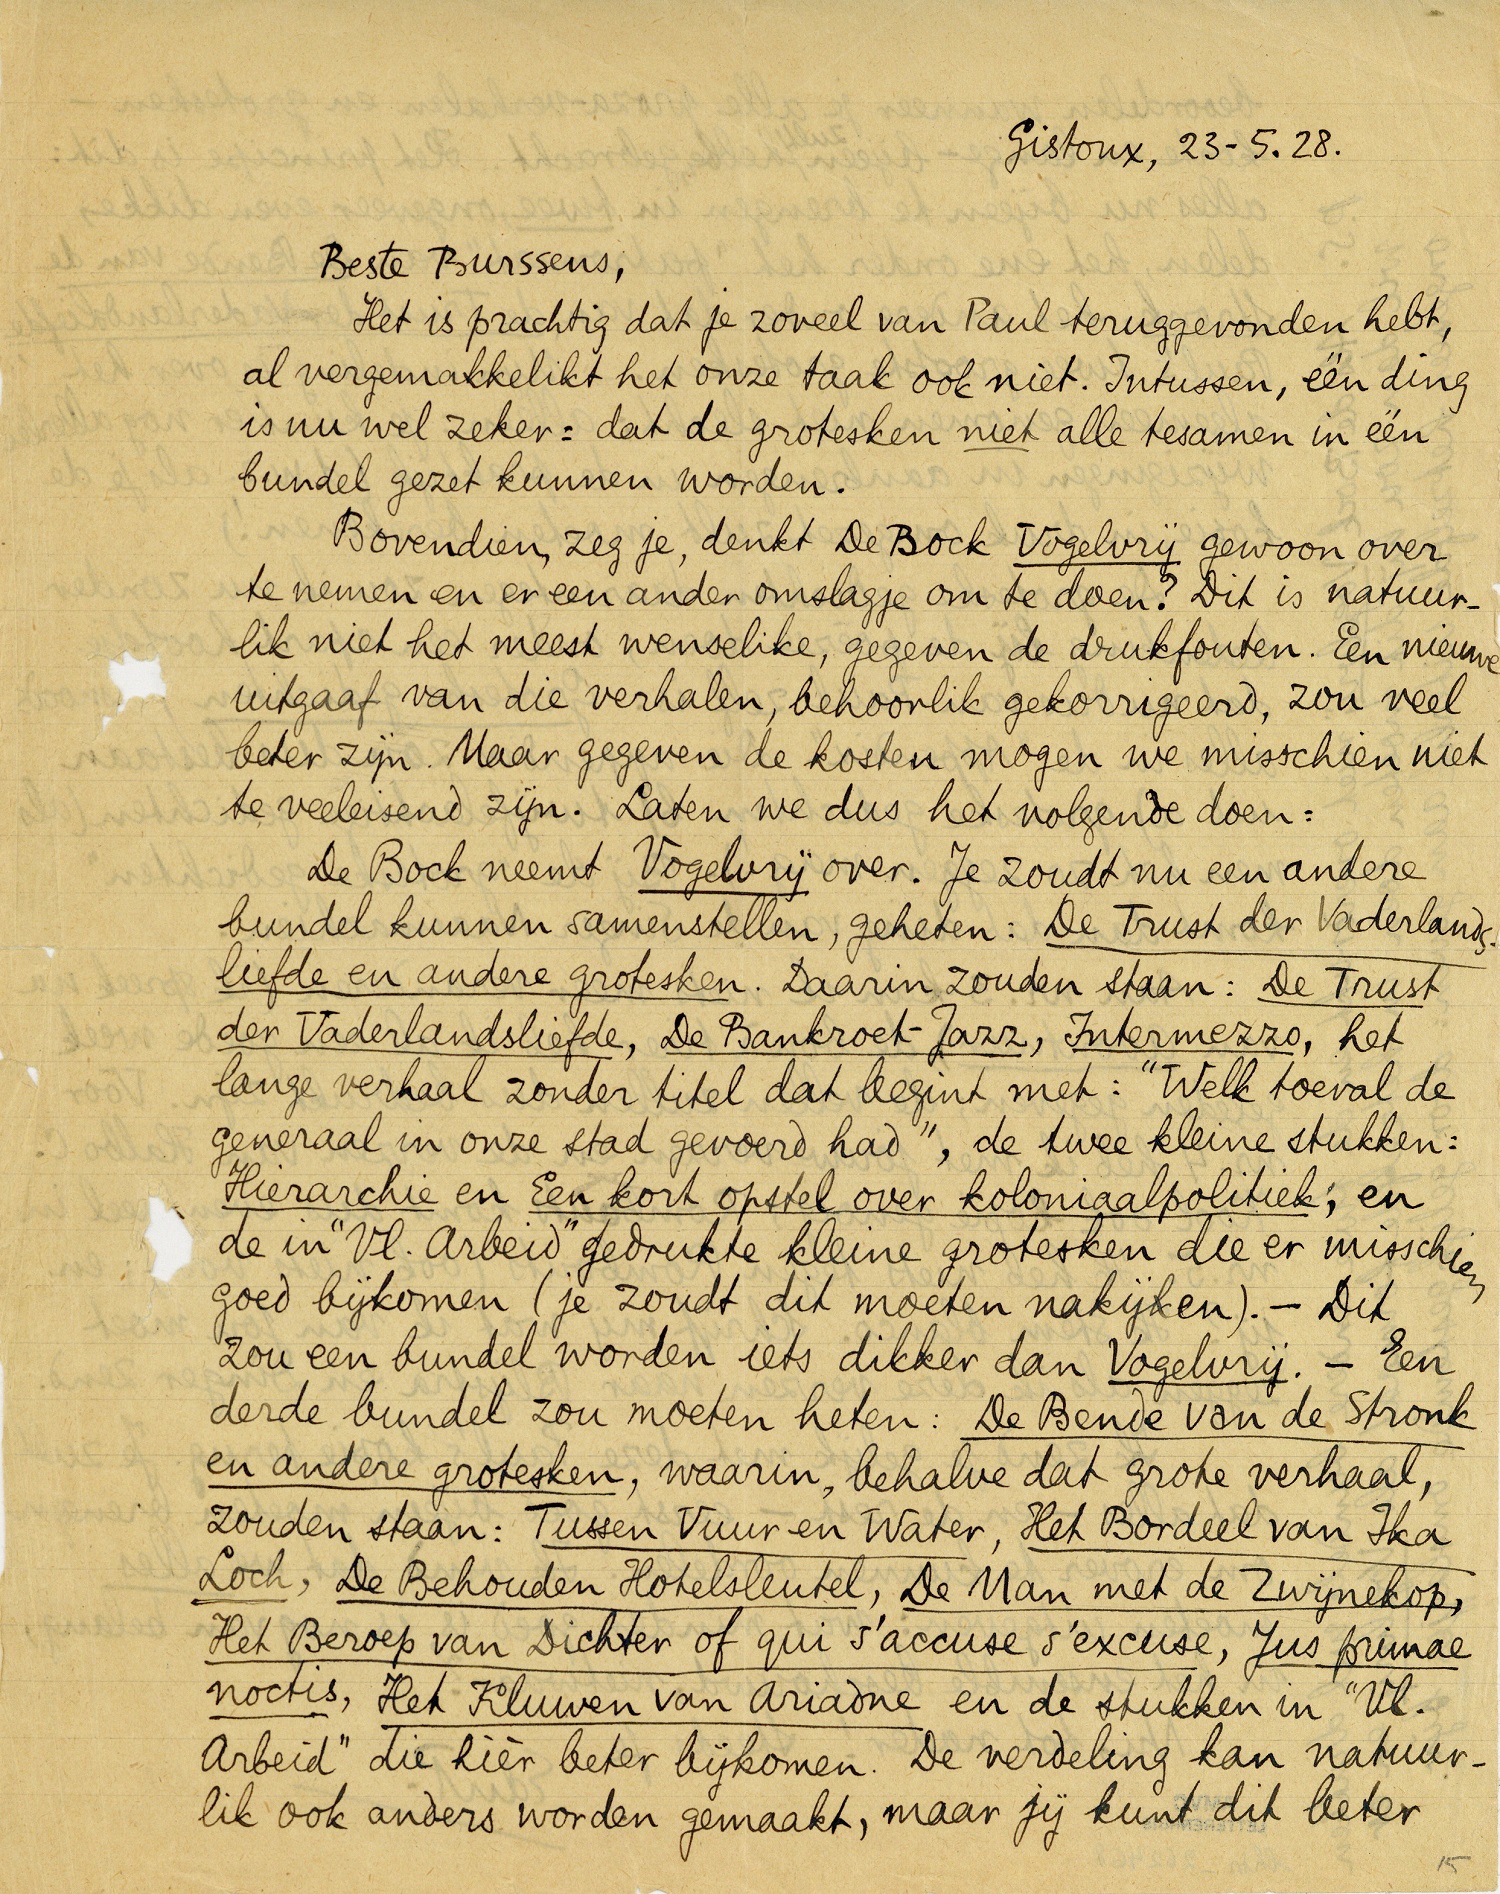 Gistoux, 23-5.28.
Beste Burssens,
Het is prachtig dat je zoveel van Paul teruggevonden hebt,
al vergemakkelikt het onze taak ook niet. Intussen, één ding
is nu wel zeker: dat de grotesken niet alle tesamen in één
bundel gezet kunnen worden.
Bovendien, zeg je, denkt De Bock Vogelvrij gewoon over
te nemen en er een ander omslagje om te doen? Dit is natuur-
lik niet het meest wenselike, gegeven de drukfouten. Een nieuwe
uitgaaf van die verhalen, behoorlik gekorrigeerd, zou veel
beter zijn. Maar gegeven de kosten mogen we misschien niet
te veeleisend zijn. Laten we dus het volgende doen:
De Bock neemt Vogelvrij over. Je zoudt nu een andere
bundel kunnen samenstellen, geheten: De Trust der Vaderlands-
liefde en andere grotesken. Daarin zouden staan: De Trust
der Vaderlandsliefde, De Bankroet-Jazz, Intermezzo, het
lange verhaal zonder titel dat begint met: "Welk toeval de
generaal in onze stad gevoerd had", de twee kleine stukken:
Hiërarchie en Een kort opstel over koloniaalpolitiek; en
de in "Vl. Arbeid" gedrukte kleine grotesken die er misschien
goed bijkomen (je zoudt dit moeten nakijken). — Dit
zou een bundel worden iets dikker dan Vogelvrij. — Een
derde bundel zou moeten heten: De Bende van de Stronk
en andere grotesken, waarin, behalve dat grote verhaal,
zouden staan: Tussen Vuur en Water, Het Bordeel van Ika
Loch, De Behouden Hotelsleutel, De Man met de Zwijnekop,
Het Beroep van Dichter of qui s'accuse s'excuse, Jus primae
noctis, Het Kluwen van Ariadne en de stukken in "Vl.
Arbeid" die hièr beter bijkomen. De verdeling kan natuur-
lik ook anders worden gemaakt, maar jij kunt dit beter
15